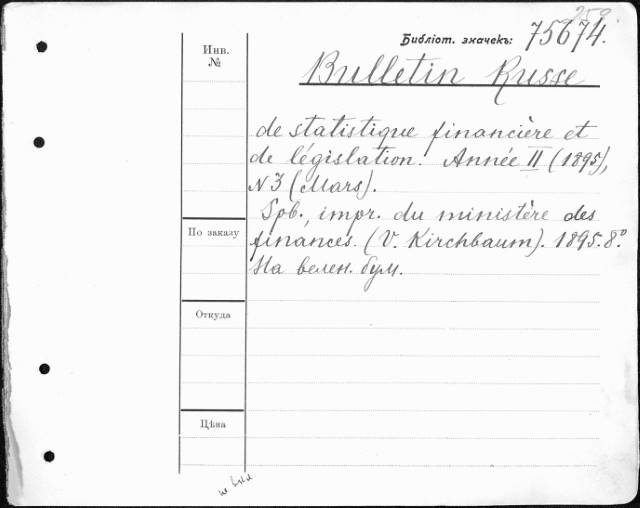 Библіот. значекъ: 75674.
Инв.
№
Bulletin Russe
de statistique financière et
de législation. Année II (1895),
N 3 (Mars).
Spb., impr. du ministère des
По заказу
finances. (V. Kirchbaum). 1895. 8º.
На велен. бум.
Откуда
Цѣна